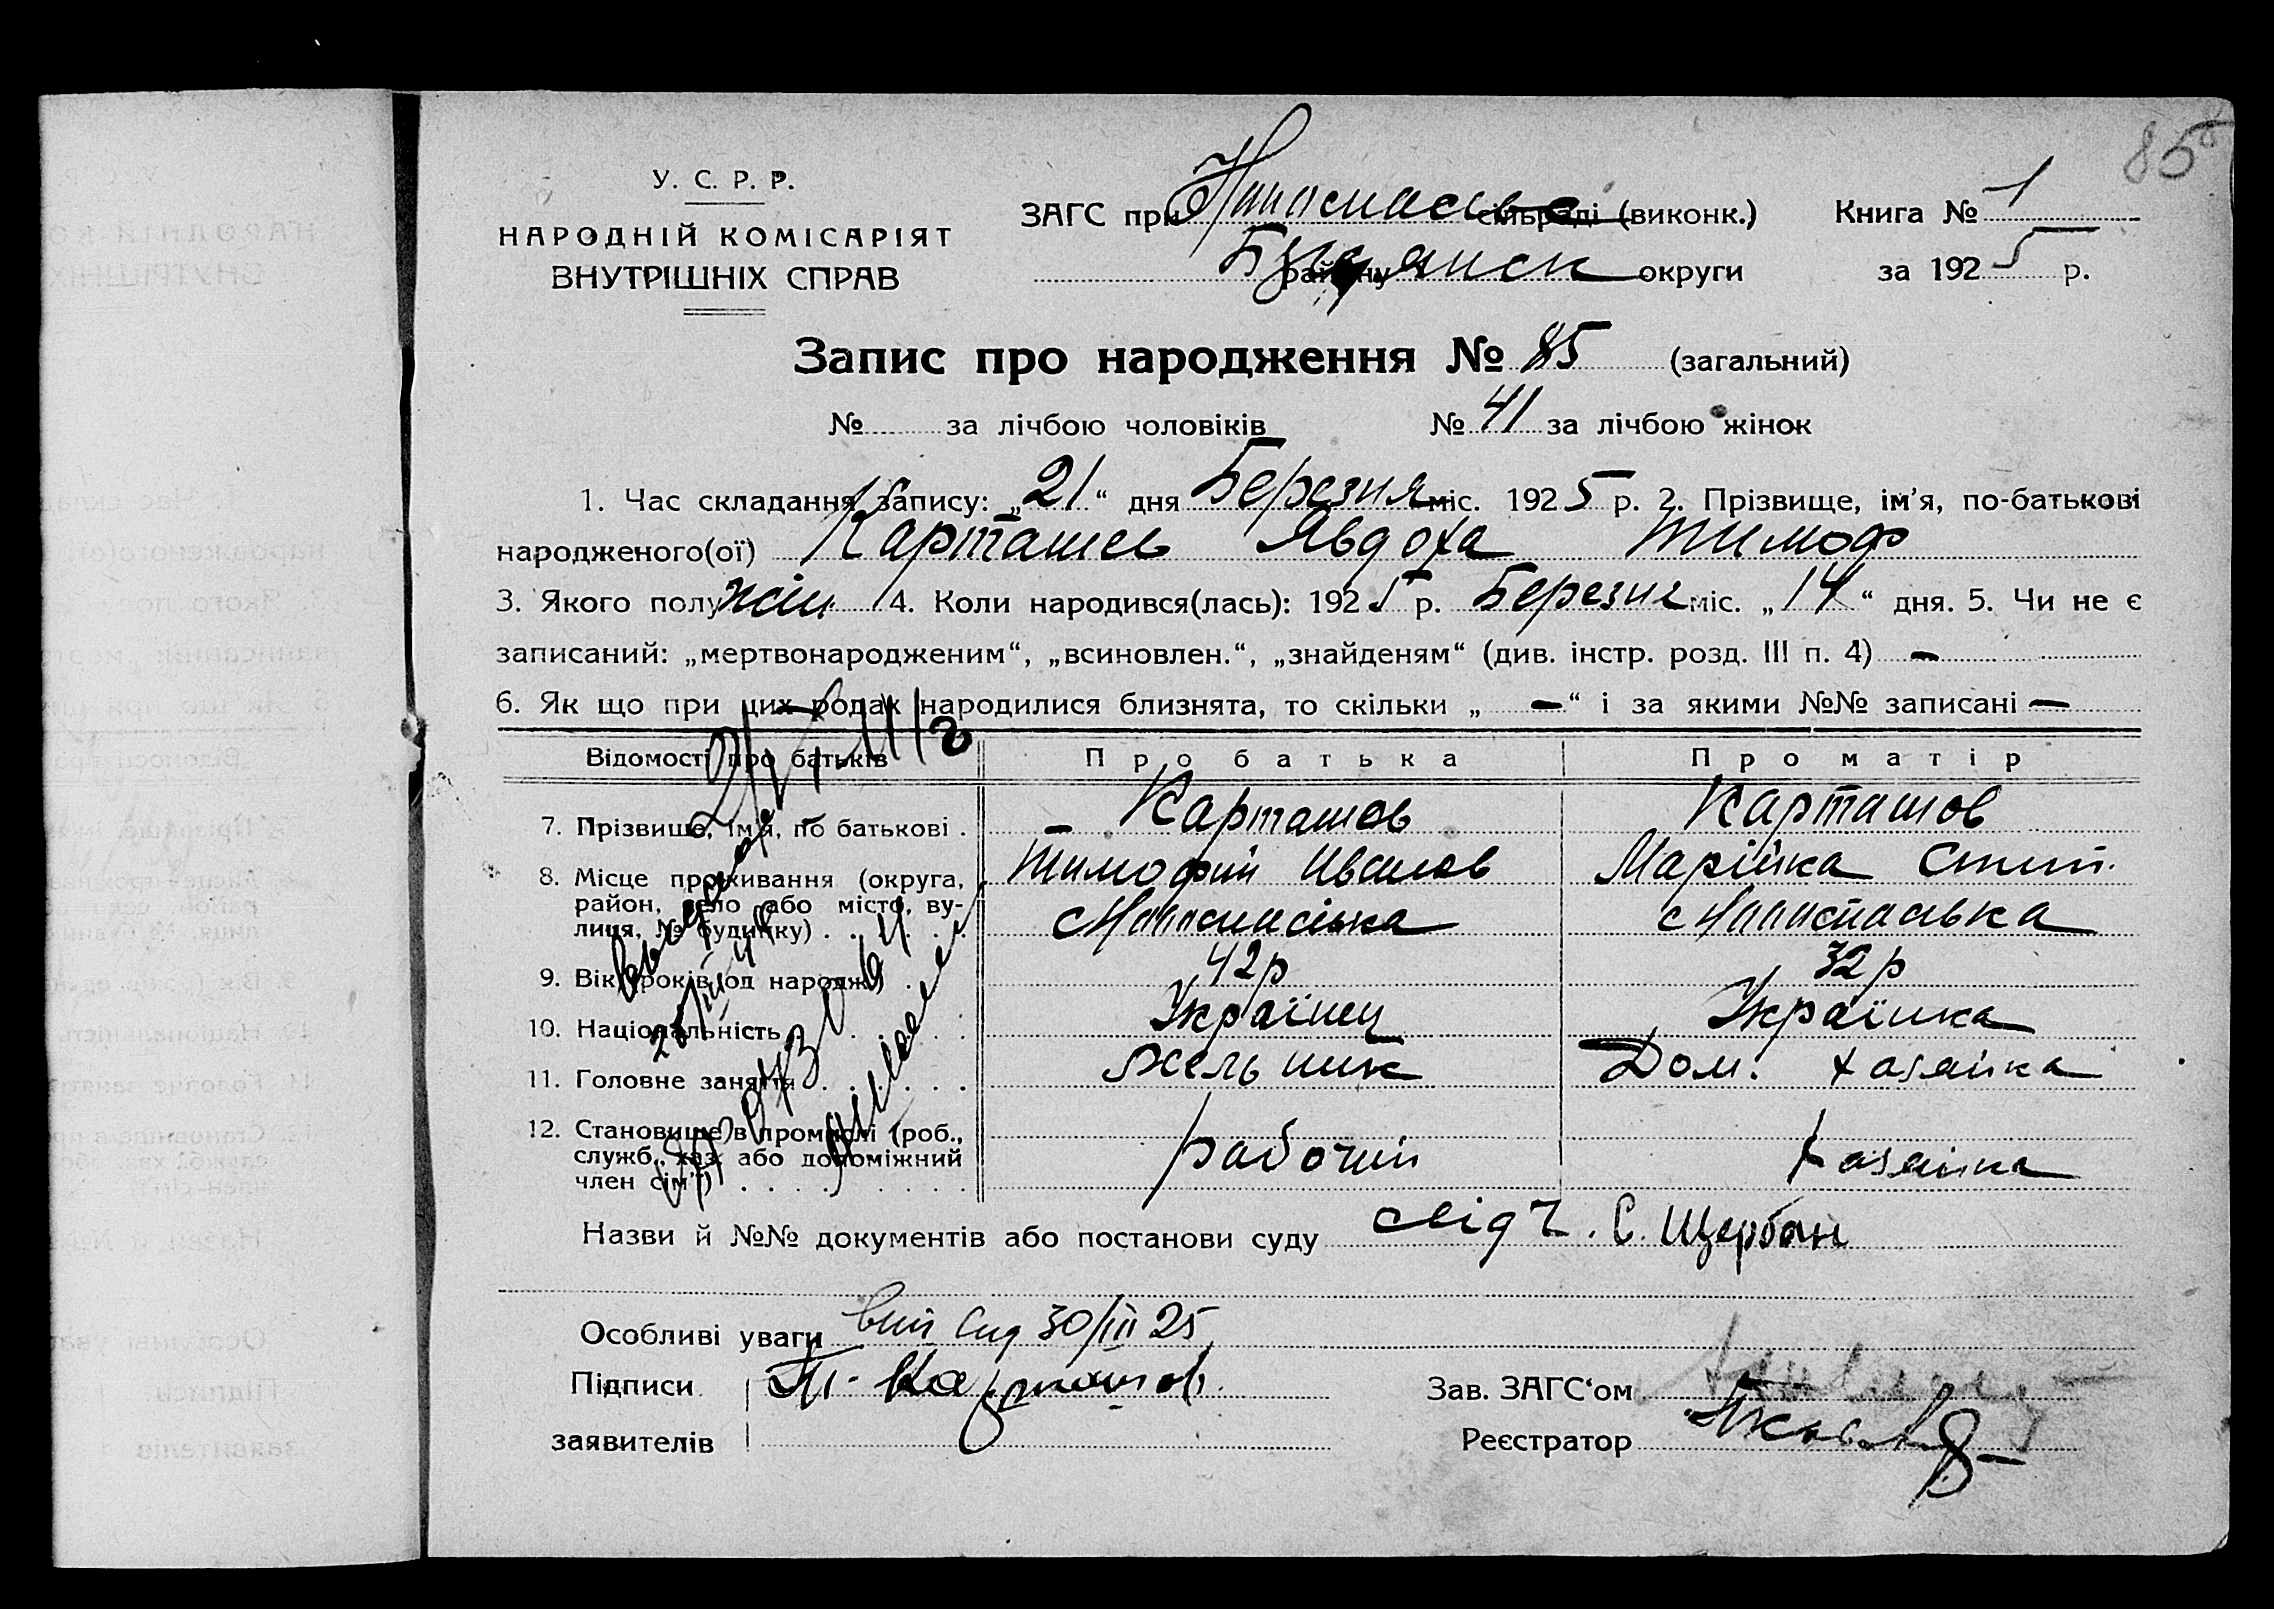 85
У. С. Р. Р.
НАРОДНІЙ КОМІСАРІЯТ
ВНУТРІШНІХ СПРАВ
ЗАГС при сільраді (виконк.)
району округи
Книга № 1
за 1925 р.
Запис про народження № 85 (загальний)
№ за лічбою чоловіків № 41 за лічбою жінок
1. Час складання запису: „21“ дня Березня міс. 1925 р. 2. Прізвище, ім'я, по-батькові
народженого(ої) Карташев Явдоха Тимоф
3. Якого полу жін. 4. Коли народився(лась): 1925 р. Березня міс. „14“ дня. 5. Чи не є
записаний: „мертвонародженим“, „всиновлен.“, „знайденям“ (див. інстр. розд. III п. 4) —
6. Як що при цих родах народилися близнята, то скільки „—“ і за якими №№ записані —
Відомості про батьків Про батька Про матір
7. Прізвище, ім'я, по батькові . Карташов Карташов
Тимофій Иванов Марійка
8. Місце проживання (округа,
район, село або місто, ву-
лиця, № будинку) . . . .
9. Вік (років од народж.) . . 42р 32р
10. Національність . . . . Українец Українка
11. Головне заняття . . . . Мельник Дом. хазяйка
12. Становище в промислі (роб.,
служб., хаз. або допоміжний
член сім'ї) . . . . . . . . рабочий хазяйка
Назви й №№ документів або постанови суду С. Щербан
Особливі уваги 30/III 25
Підписи Т. Карташов
заявителів
Зав. ЗАГС‘ом
Реєстратор